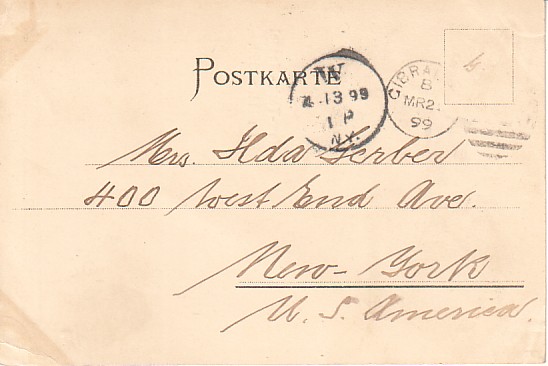 POSTKARTE
W
4.13 99
1 P
N.Y.
GIBRAL
B
MR2
99
Mrs. Ilda Gerber
400 West End Ave.
New-York
U. S. America.